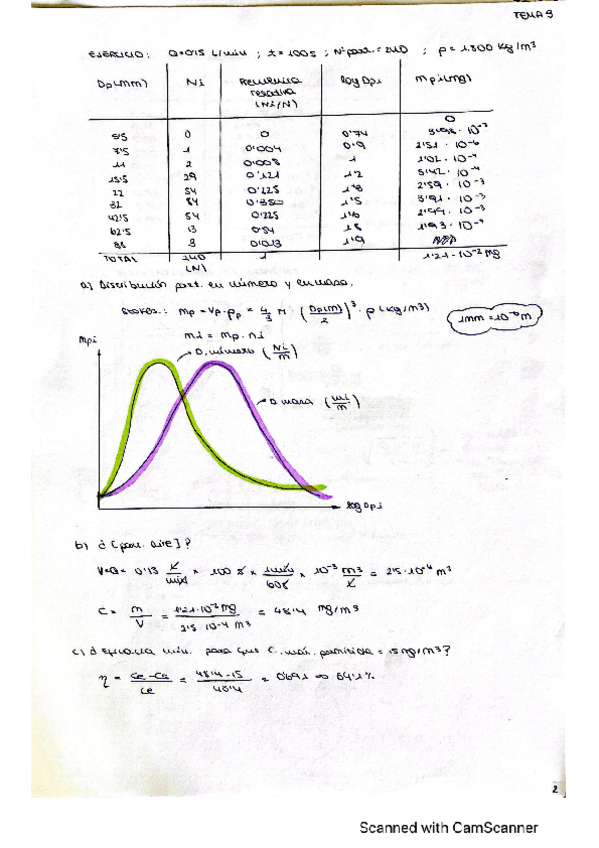 TEMA 9
EJERCICIO: Q=0'15 L/min ; t=100s ; Nº part.=240 ; ρ= 1.800 kg/m³
Dp(mm) Ni Frecuencia relativa (Ni/N) log Dpi mpi(mg)
0
5'5 0 0 0'74
7'5 1 0'004 0'9 2'51 · 10⁻⁶
11 2 0'008 1
15'5 29 0'121 1'2 5'42 · 10⁻⁴
22 54 0'225 2'59 · 10⁻³
32 84 1'5 3'91 · 10⁻³
42'5 54 0'225 1'6 2'99 · 10⁻³
62'5 13 1'8 1'93 · 10⁻³
88 3 0'013 1'9
TOTAL 240 (N) 1 1'21 · 10⁻² mg
a) Distribución part. en número y en masa.
mp = Vp · ρp = 4/3 π (Dp(m)/2)³ · ρ (kg/m³)
1mm = 10⁻⁶ m
mi = mp · ni
mpi
D. número (Ni/m)
D masa (mi/m)
log Dpi
b) ¿ [part. aire] ?
V=Q= 0'15 L/min × 100 s × 1min/60s × 10⁻³ m³/L = 2'5 · 10⁻⁴ m³
C = m/V = 1'21·10⁻² mg / 2'5 · 10⁻⁴ m³ = 48'4 mg/m³
c) ¿ Eficacia mín. para que C. máx. permitida = 15 mg/m³ ?
η = Ce-Cs/Ce = 48'4-15/48'4 = 0'691 ∞ 64'1%
2
Scanned with CamScanner